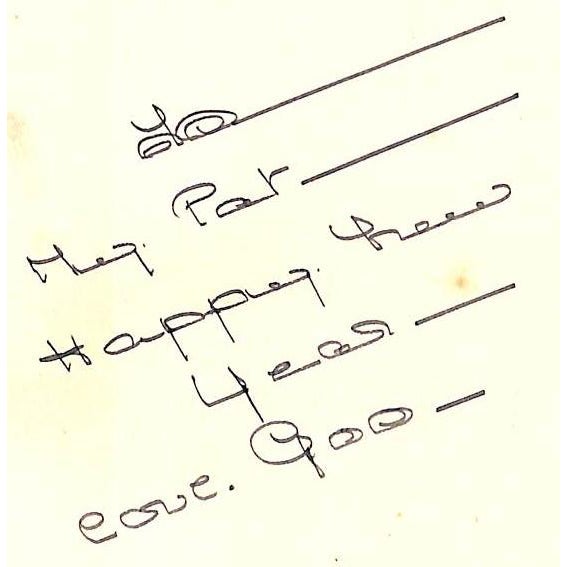 To
My. Pat
Happy. new
Year
love. Goo